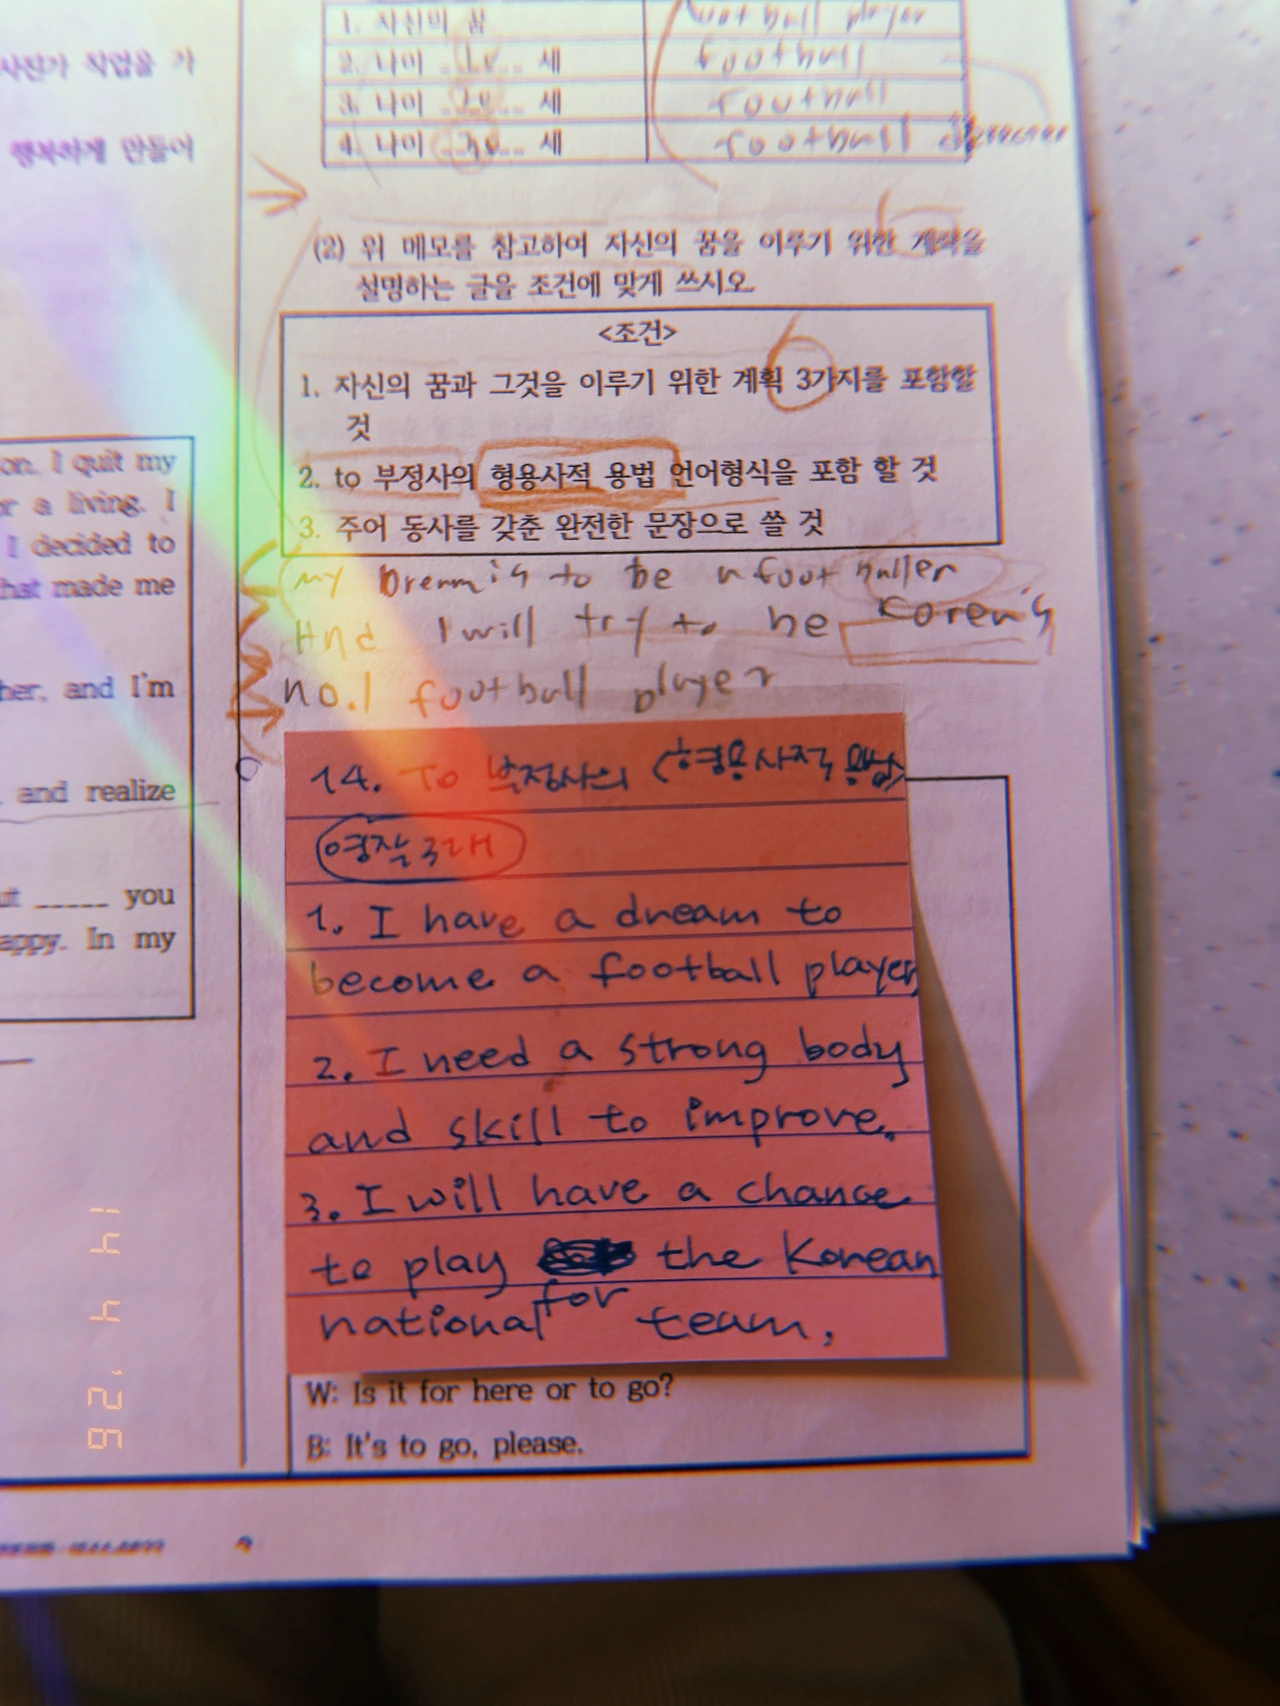 사진가 직업을 가
행복하게 만들어
on. I quit my
or a living. I
I decided to
that made me
her, and I'm
and realize
ut _____ you
appy. In my
1. 자신의 꿈
football player
2. 나이 10 세
football
3. 나이 20 세
football
4. 나이 30 세
football
(2) 위 메모를 참고하여 자신의 꿈을 이루기 위한 계획을
설명하는 글을 조건에 맞게 쓰시오.
<조건>
1. 자신의 꿈과 그것을 이루기 위한 계획 3가지를 포함할
것
2. to 부정사의 형용사적 용법 언어형식을 포함 할 것
3. 주어 동사를 갖춘 완전한 문장으로 쓸 것
my Dream is to be a footballer
And I will try to be Korea's
no.1 football player
14. To 부정사의 (형용사적 용법)
영작 3개
1. I have a dream to
become a football player
2. I need a strong body
and skill to improve.
3. I will have a chance
to play the Korean
national for team.
W: Is it for here or to go?
B: It's to go, please.
14 4 '26